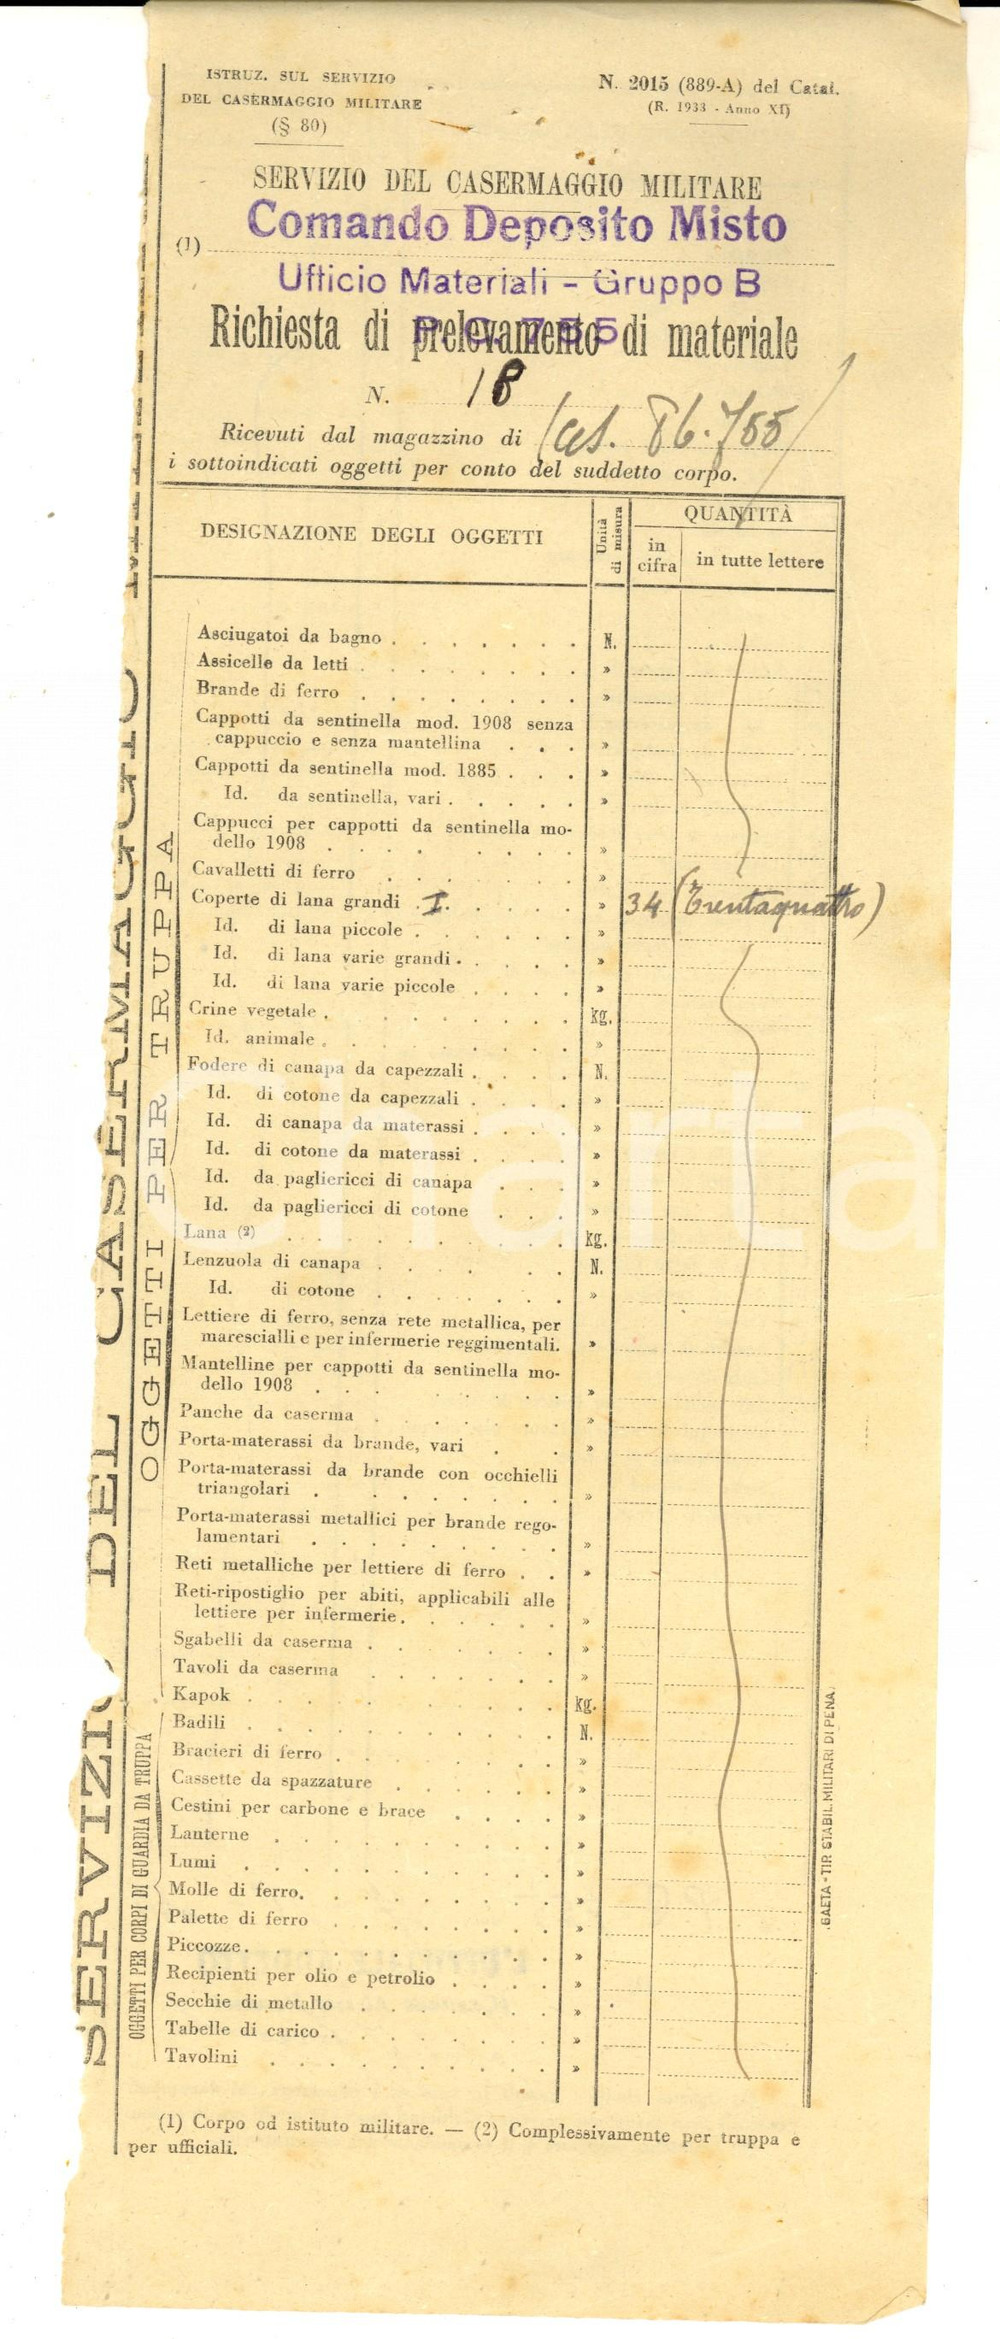 ISTRUZ. SUL SERVIZIO
DEL CASERMAGGIO MILITARE
(§ 80)
N. 2015 (889-A) del Catal.
(R. 1933 - Anno XI)
SERVIZIO DEL CASERMAGGIO MILITARE
Comando Deposito Misto
(1)
Ufficio Materiali - Gruppo B
Richiesta di prelevamento di materiale
N. 18
Ricevuti dal magazzino di Cas. 86.755
i sottoindicati oggetti per conto del suddetto corpo.
DESIGNAZIONE DEGLI OGGETTI
Unità di misura
QUANTITÀ
in cifra
in tutte lettere
SERVIZIO DEL CASERMAGGIO
OGGETTI PER TRUPPA
Asciugatoi da bagno . . . . . . . N.
Assicelle da letti . . . . . . . . »
Brande di ferro . . . . . . . . »
Cappotti da sentinella mod. 1908 senza
cappuccio e senza mantellina . . . »
Cappotti da sentinella mod. 1885 . . . »
Id. da sentinella, vari . . . . . »
Cappucci per cappotti da sentinella mo-
dello 1908 . . . . . . »
Cavalletti di ferro . . . . . . . »
Coperte di lana grandi . I . . . . . » 34 (Trentaquattro)
Id. di lana piccole . . . . . . »
Id. di lana varie grandi . . . . . »
Id. di lana varie piccole . . . . »
Crine vegetale . . . . . . . . kg.
Id. animale . . . . . . . . »
Fodere di canapa da capezzali . . . . N.
Id. di cotone da capezzali . . . . »
Id. di canapa da materassi . . . . »
Id. di cotone da materassi . . . . »
Id. da pagliericci di canapa . . . »
Id. da pagliericci di cotone . . . »
Lana (2) . . . . . . . . . kg.
Lenzuola di canapa . . . . . N.
Id. di cotone . . . . . . . »
Lettiere di ferro, senza rete metallica, per
marescialli e per infermerie reggimentali. »
Mantelline per cappotti da sentinella mo-
dello 1908 . . . . . . »
Panche da caserma . . . . . . »
Porta-materassi da brande, vari . . »
Porta-materassi da brande con occhielli
triangolari . . . . . . . »
Porta-materassi metallici per brande rego-
lamentari . . . . . . . . »
Reti metalliche per lettiere di ferro . . »
Reti-ripostiglio per abiti, applicabili alle
lettiere per infermerie . . . . . »
Sgabelli da caserma . . . . . . »
Tavoli da caserma . . . . . . »
Kapok . . . . . . . . . kg.
OGGETTI PER CORPI DI GUARDIA DA TRUPPA
Badili . . . . . . . . . N.
Bracieri di ferro . . . . . . . »
Cassette da spazzature . . . . . »
Cestini per carbone e brace . . . . »
Lanterne . . . . . . . . . »
Lumi . . . . . . . . . . »
Molle di ferro. . . . . . . . »
Palette di ferro . . . . . . . »
Piccozze . . . . . . . . . »
Recipienti per olio e petrolio . . . . »
Secchie di metallo . . . . . . »
Tabelle di carico . . . . . . . »
Tavolini . . . . . . . . . »
GAETA - TIP. STABIL. MILITARI DI PENA
(1) Corpo od istituto militare. — (2) Complessivamente per truppa e
per ufficiali.
charta